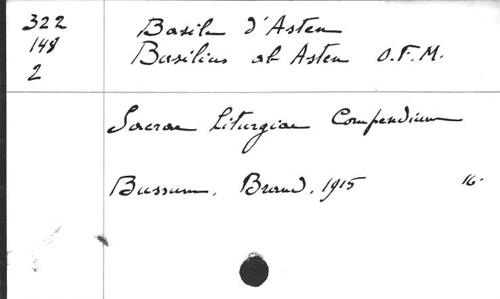 322
148
2
Basile d'Asten
Basilius ab Asten O.F.M.
Sacrae Liturgiae Compendium
Bussum, Brand, 1915 16°